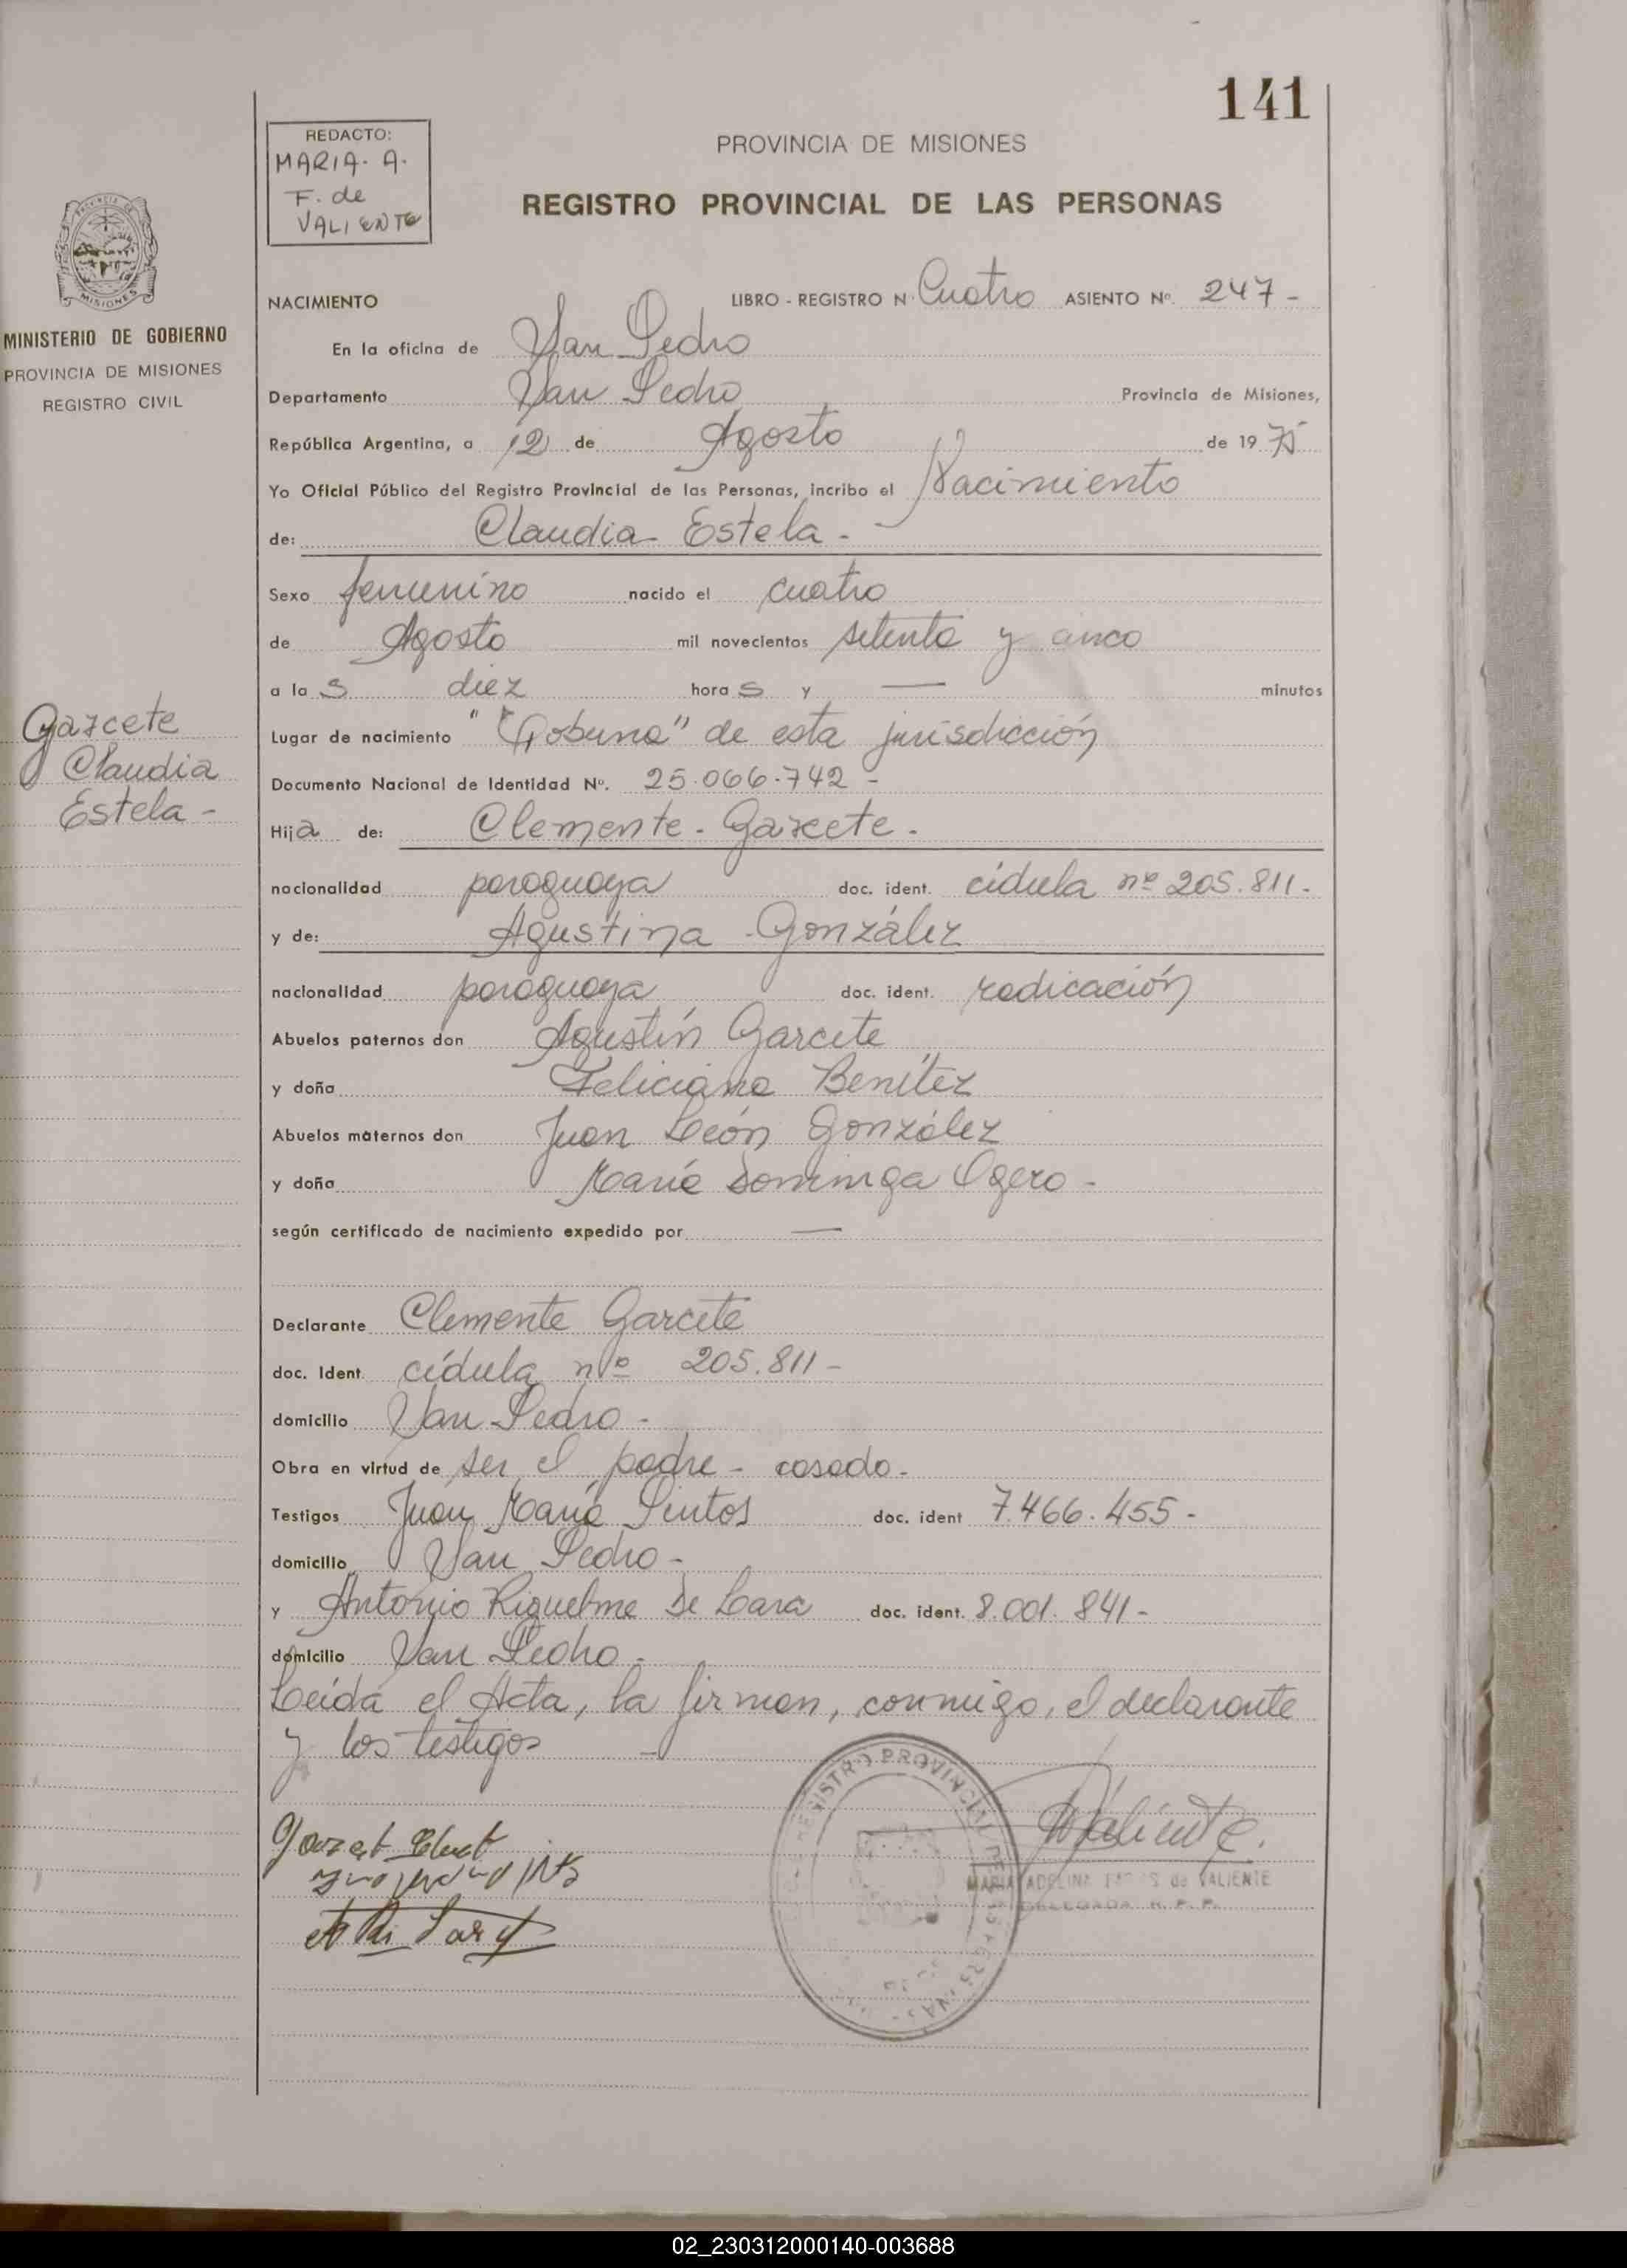 141
REDACTO:
MARIA. A.
F. de
VALIENTE
PROVINCIA DE MISIONES
REGISTRO PROVINCIAL DE LAS PERSONAS
MISIONES
MINISTERIO DE GOBIERNO
PROVINCIA DE MISIONES
REGISTRO CIVIL
Garcete
Claudia
Estela -
NACIMIENTO LIBRO - REGISTRO N· Cuatro ASIENTO Nº. 247 -
En la oficina de San Pedro
Departamento San Pedro Provincia de Misiones,
República Argentina, a 12 de Agosto de 19 75
Yo Oficial Público del Registro Provincial de las Personas, incribo el Nacimiento
de: Claudia Estela -
Sexo femenino nacido el cuatro
de Agosto mil novecientos setenta y cinco
a la s diez hora s y — minutos
Lugar de nacimiento " de esta jurisdicción
Documento Nacional de Identidad Nº. 25.066.742 -
Hija de: Clemente - Garcete -
nacionalidad paraguaya doc. ident. cédula nº 205.811 -
y de: Agustina González
nacionalidad paraguaya doc. ident. radicación
Abuelos paternos don Agustín Garcete
y doña Feliciana Benítez
Abuelos maternos don Juan León González
y doña María Dominga Ogero -
según certificado de nacimiento expedido por —
Declarante Clemente Garcete
doc. Ident. cédula nº 205.811 -
domicilio San Pedro -
Obra en virtud de ser el padre - casado -
Testigos Juan María Pintos doc. ident 7.466.455 -
domicilio San Pedro -
y Antonio Riquelme De Lara doc. ident. 8.001.841 -
domicilio San Pedro -
Leída el Acta, la firman, conmigo, el declarante
y los testigos —
REGISTRO PROVINCIAL DE LAS PERSONAS
Valiente.
MARIA ADELINA de VALIENTE
DELEGADA R. P. P.
02_230312000140-003688